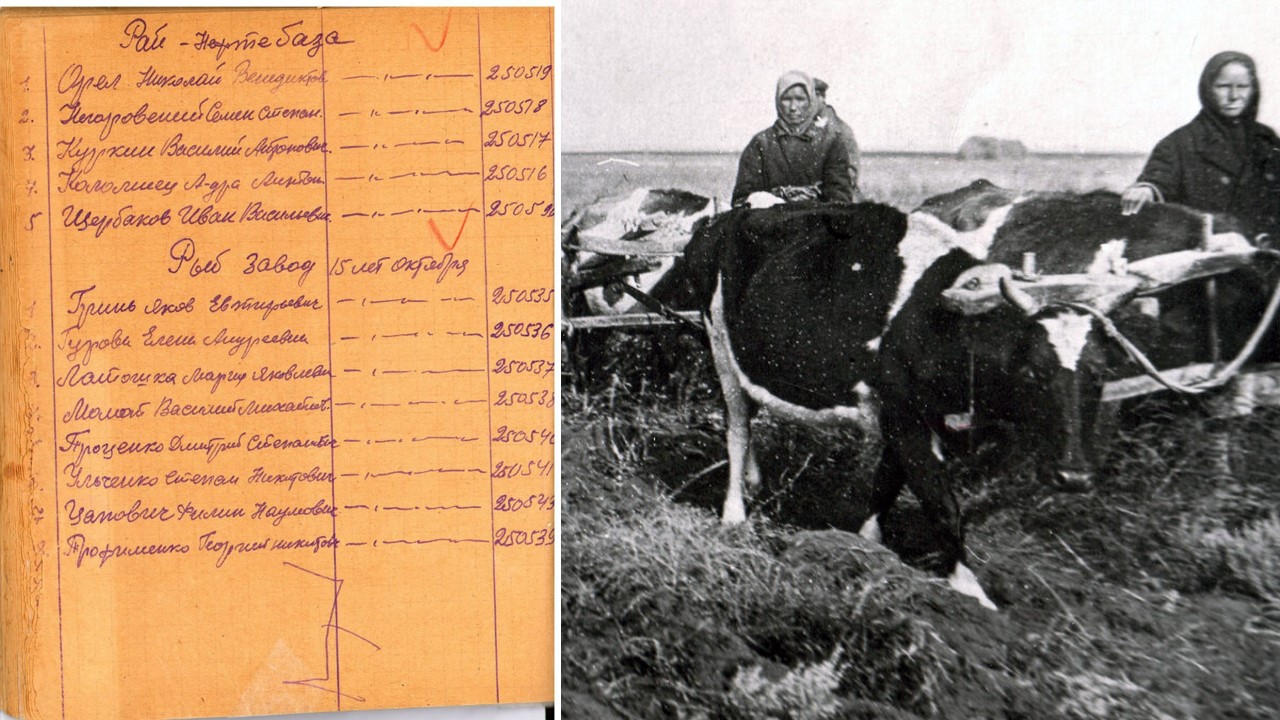 Рай - Нефтебаза
1. Орел Николай Венедиктов 250519
2. Семен Степан. 250518
3. Кузькин Василий Айронович. 250517
4. Коломиец А-дра 250516
5 Щербаков Иван Васильевич 2505
Рыб Завод 15 лет октября
Гринь Яков 250535
Гурова Елена Андреевна 250536
Латошка Мария Яковлевна 250537
Мамай Василий Михайлов. 250538
Проценко Дмитрий Степанович 250540
Ульченко Степан Никитович 250541
Цапович Филип Наумович 250543
Трофименко Георгий Никитович 250539